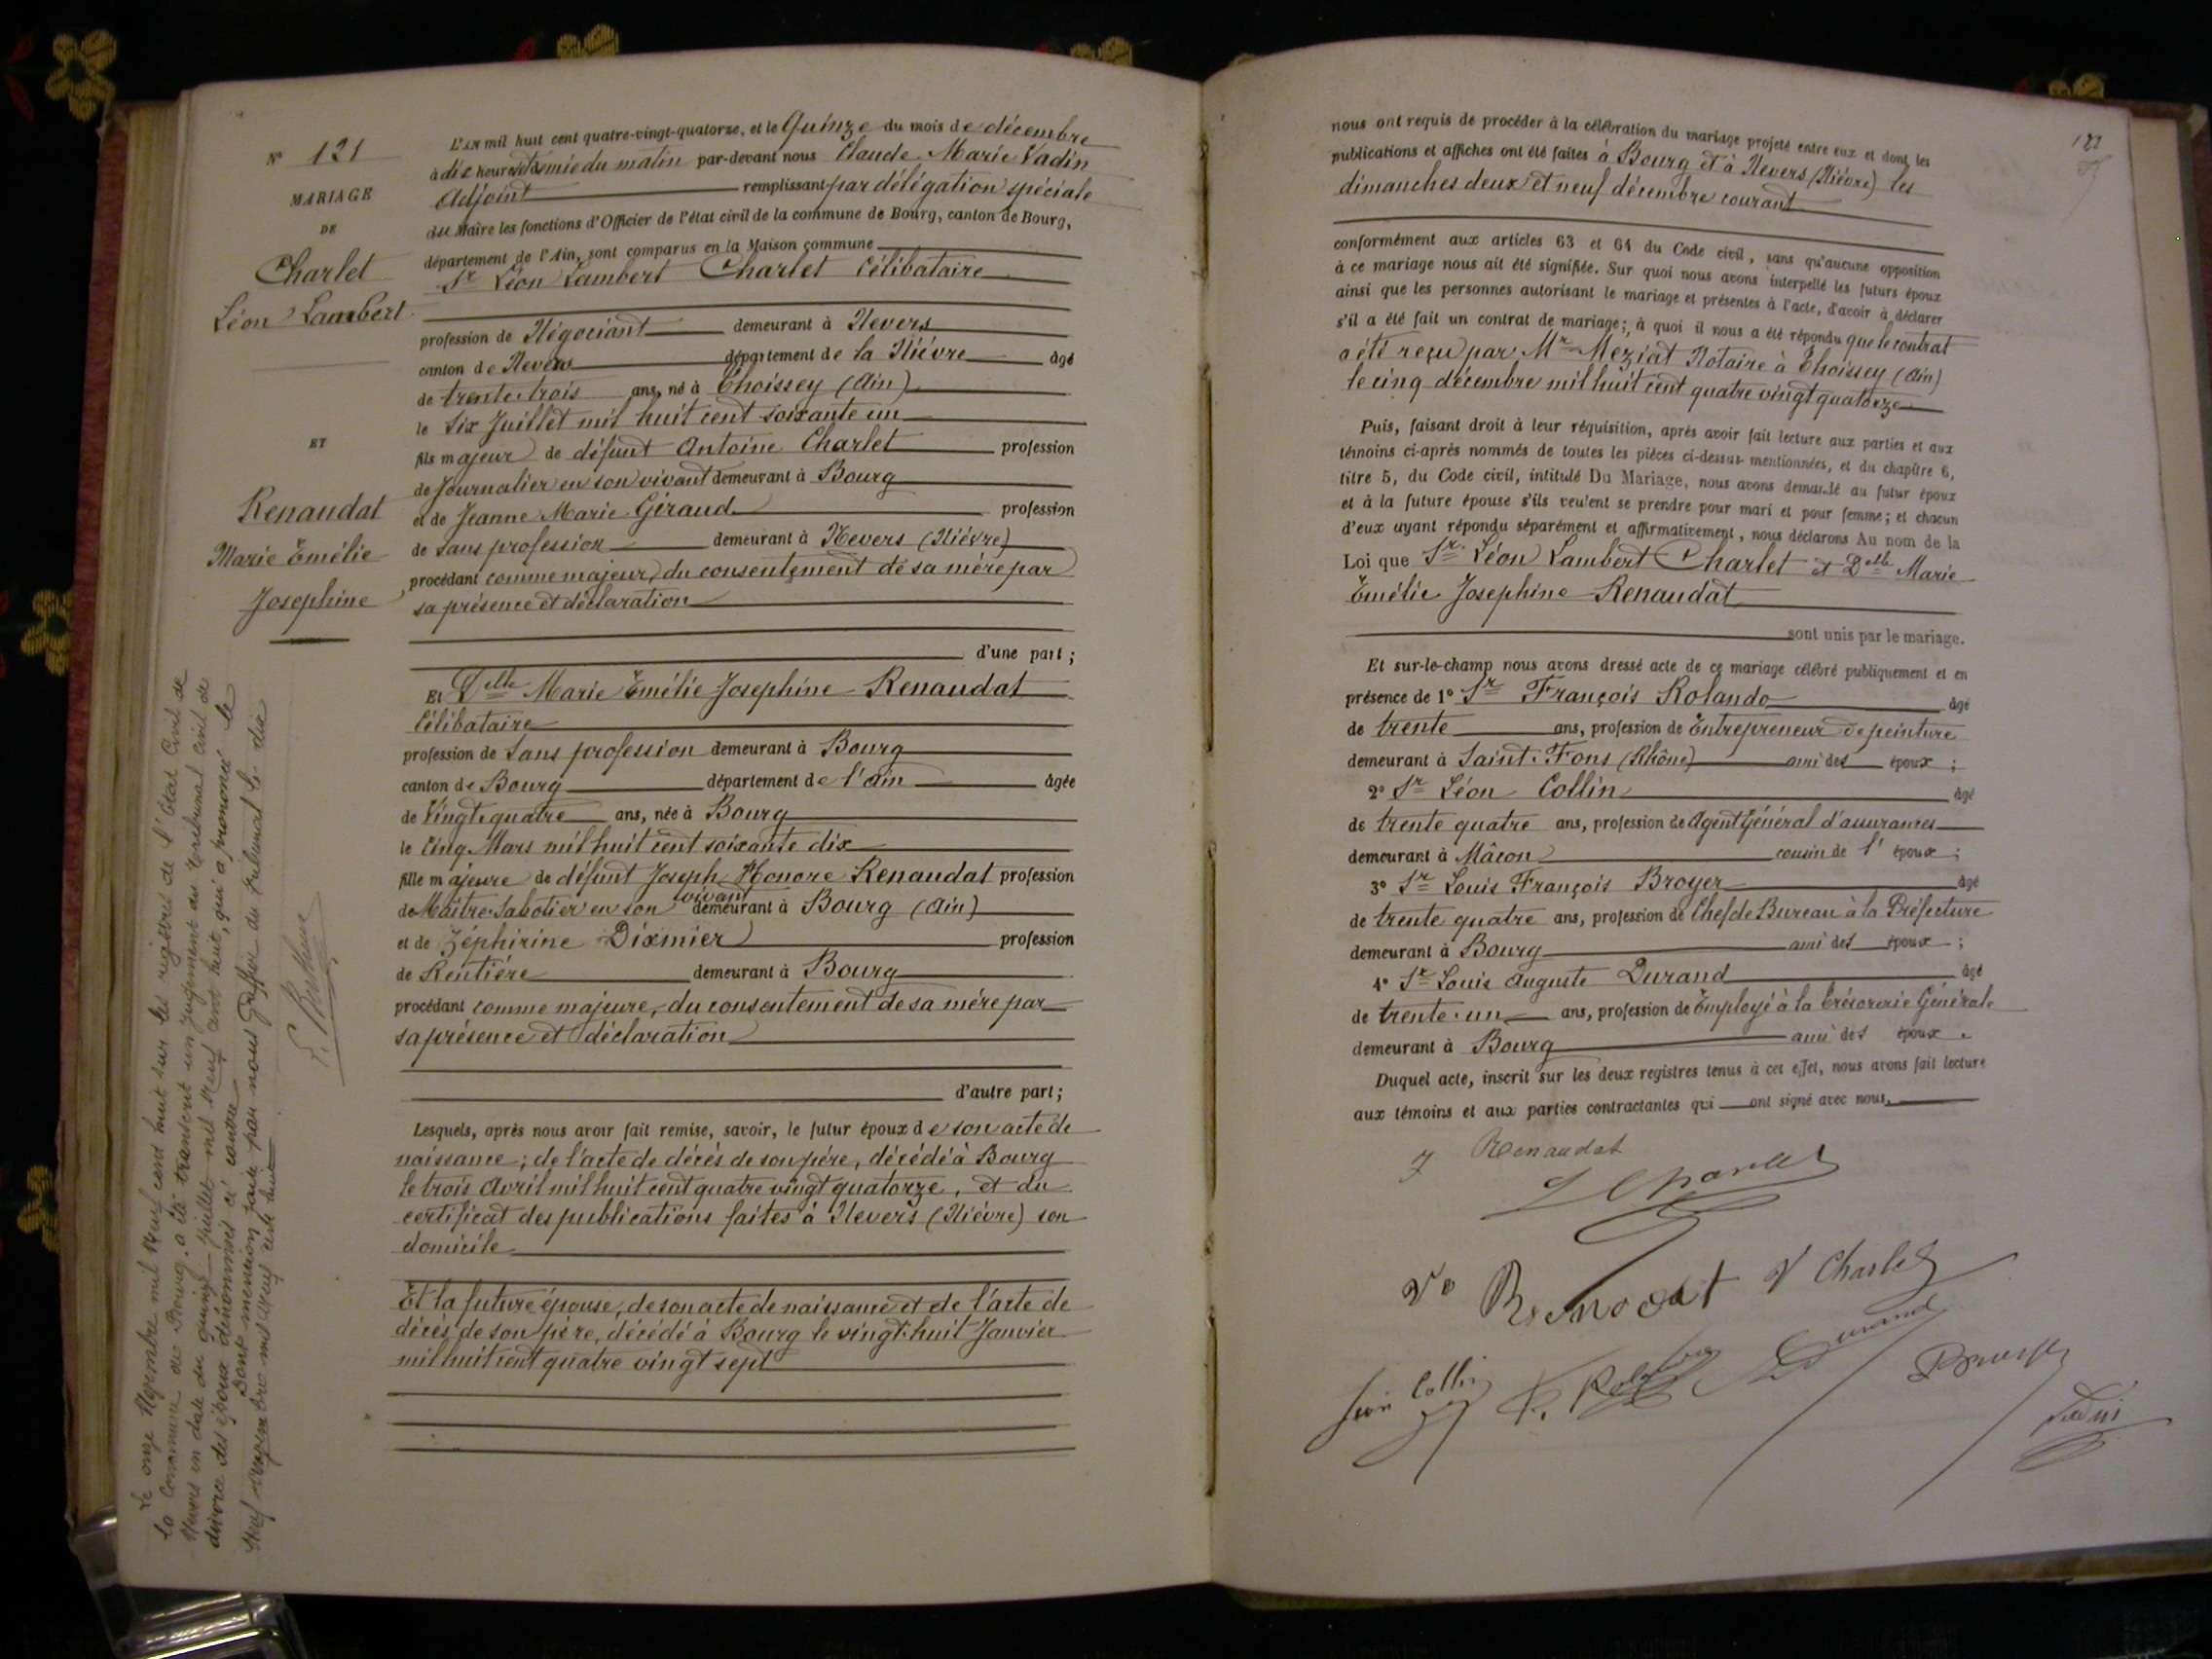 N° 121
MARIAGE
DE
Charlet
Léon Lambert
ET
Renaudat
Marie Emélie
Josephine
L'an mil huit cent quatre-vingt-quatorze, et le Quinze du mois de décembre
à dix heures et demie du matin par-devant nous Claude Marie Vadin
Adjoint remplissant par délégation spéciale
du Maire les fonctions d'Officier de l'état civil de la commune de Bourg, canton de Bourg,
département de l'Ain, sont comparus en la Maison commune
Sr Léon Lambert Charlet Célibataire
profession de Négociant demeurant à Nevers
canton de Nevers département de la Nièvre âgé
de trente trois ans, né à Thoissey (Ain)
le Six Juillet mil huit cent soixante un
fils majeur de défunt Antoine Charlet profession
de Journalier en son vivant demeurant à Bourg
et de Jeanne Marie Géraud profession
de sans profession demeurant à Nevers (Nièvre)
procédant comme majeur, du consentement de sa mère par
sa présence et déclaration
d'une part ;
Et Delle Marie Emélie Josephine Renaudat
Célibataire
profession de Sans profession demeurant à Bourg
canton de Bourg département de l'Ain âgée
de Vingt quatre ans, née à Bourg
le Cinq Mars mil huit cent soixante dix
fille majeure de défunt Joseph Honore Renaudat profession
de Maître Sabotier en son vivant demeurant à Bourg (Ain)
et de Zéphirine Dixmier profession
de Rentière demeurant à Bourg
procédant comme majeure, du consentement de sa mère par
sa présence et déclaration
d'autre part ;
Lesquels, après nous avoir fait remise, savoir, le futur époux de son acte de
naissance ; de l'acte de décès de son père, décédé à Bourg
le trois Avril mil huit cent quatre vingt quatorze, et du
certificat des publications faites à Nevers (Nièvre) son
domicile
Et la future épouse, de son acte de naissance et de l'acte de
décès de son père, décédé à Bourg le vingt-huit Janvier
mil huit cent quatre vingt sept
Le onze Novembre mil neuf cent huit sur les registres de l'Etat Civil de
la Commune de Bourg, a été transcrit un jugement du Tribunal Civil de
Nevers en date du quinze juillet mil neuf cent huit, qui a prononcé le
divorce des époux dénommés ci contre
Dont mention faite par nous Greffier du tribunal le dix
neuf novembre mil neuf cent huit
122
nous ont requis de procéder à la célébration du mariage projeté entre eux et dont les
publications et affiches ont été faites à Bourg et à Nevers (Nièvre) les
dimanches deux et neuf décembre courant
conformément aux articles 63 et 64 du Code civil, sans qu'aucune opposition
à ce mariage nous ait été signifiée. Sur quoi nous avons interpellé les futurs époux
ainsi que les personnes autorisant le mariage et présentes à l'acte, d'avoir à déclarer
s'il a été fait un contrat de mariage; à quoi il nous a été répondu que le contrat
a été reçu par Mr Meziat Notaire à Thoissey (Ain)
le cinq décembre mil huit cent quatre vingt quatorze
Puis, faisant droit à leur réquisition, après avoir fait lecture aux parties et aux
témoins ci-après nommés de toutes les pièces ci-dessus mentionnées, et du chapître 6,
titre 5, du Code civil, intitulé Du Mariage, nous avons demandé au futur époux
et à la future épouse s'ils veulent se prendre pour mari et pour femme; et chacun
d'eux ayant répondu séparément et affirmativement, nous déclarons Au nom de la
Loi que Sr Léon Lambert Charlet et Delle Marie
Emélie Josephine Renaudat
sont unis par le mariage.
Et sur-le-champ nous avons dressé acte de ce mariage célébré publiquement et en
présence de 1° Sr François Rolando âgé
de trente ans, profession de Entrepreneur de peinture
demeurant à Saint-Fons (Rhône) ami des époux ;
2° Sr Léon Collin âgé
de trente quatre ans, profession de Agent Général d'assurances
demeurant à Mâcon cousin de l' époux ;
3° Sr Louis François Broyer âgé
de trente quatre ans, profession de Chef de Bureau à la Préfecture
demeurant à Bourg ami des époux ;
4° Sr Louis Auguste Durand âgé
de trente-un ans, profession de Employé à la Trésorerie Générale
demeurant à Bourg ami des époux .
Duquel acte, inscrit sur les deux registres tenus à cet effet, nous avons fait lecture
aux témoins et aux parties contractantes qui ont signé avec nous.
J Renaudat
L Charlet
Ve Renodat V Charlet
Léon Collin Durand